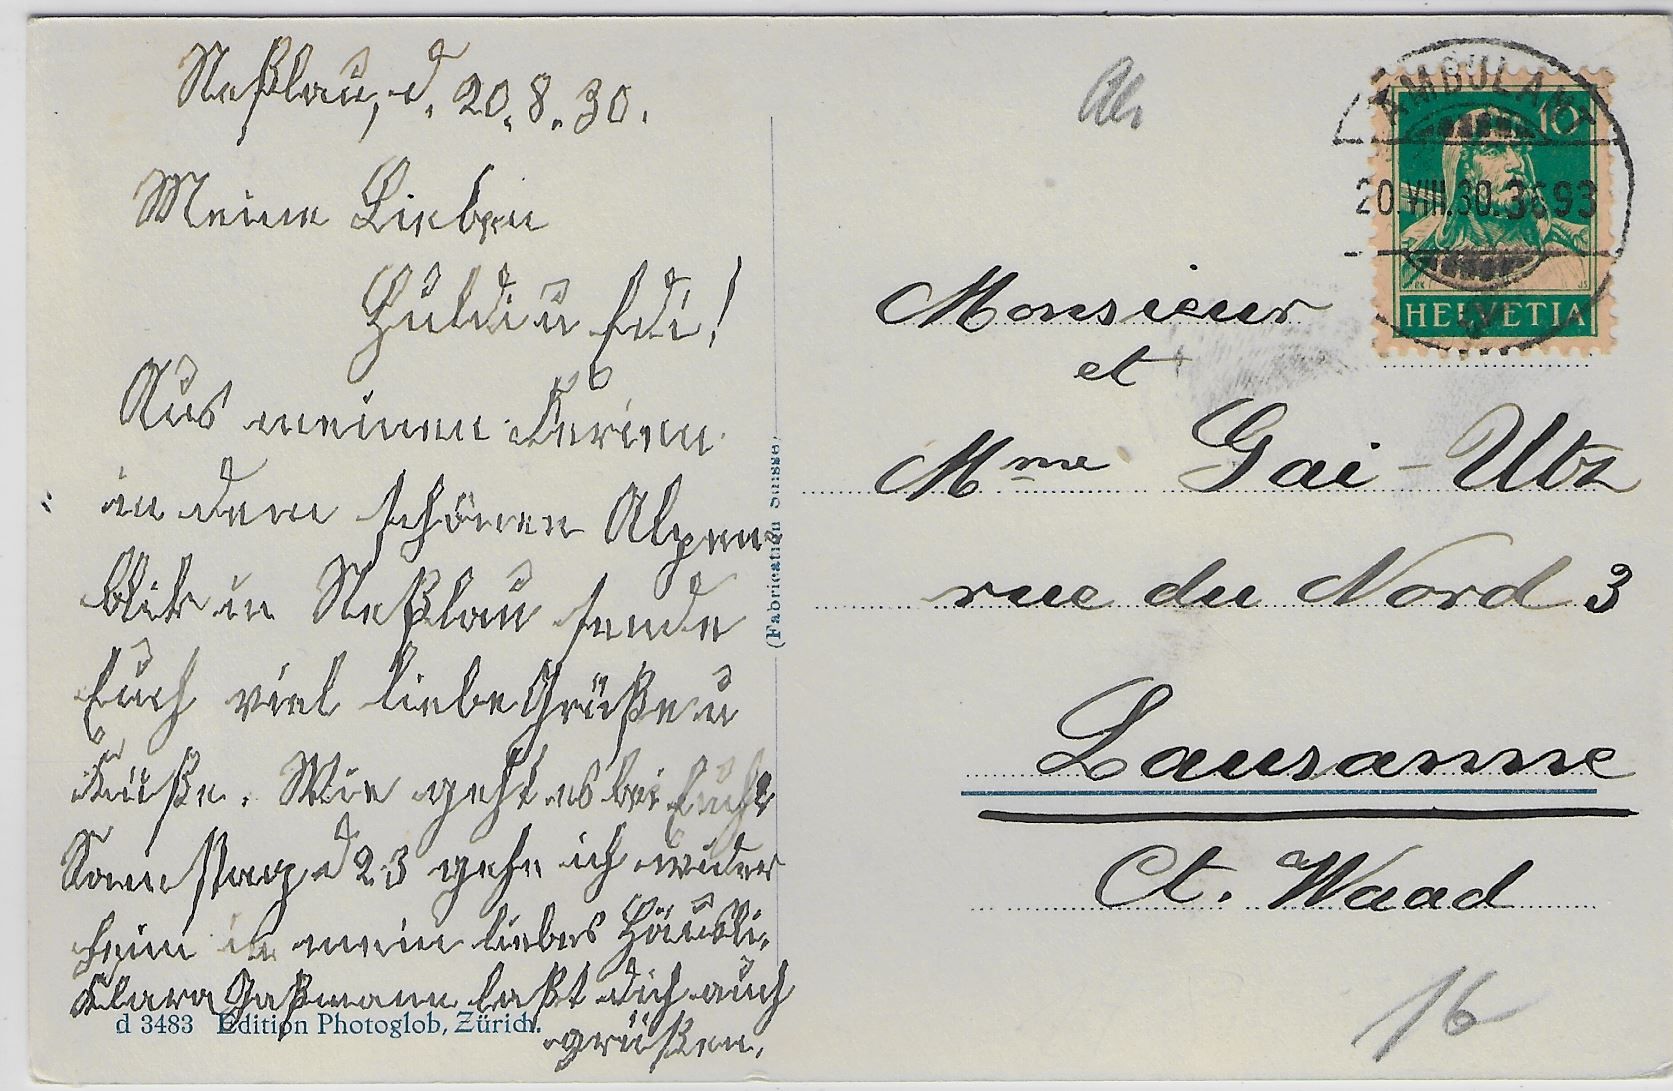 Neßlau, d. 20.8.30.
Meine Lieben
Huldi u Edi!
Aus meinen Ferien
in dem schönen Alpen
blik in Neßlau sende
Euch viel liebe Grüße u
Küße. Wie geht es bei Euch
Samstag d 23 gehe ich wider
heim in mein liebes Häusli.
Klara Gaßmann laßt dich auch
grüßen.
d 3483 Edition Photoglob, Zürich.
(Fabrication Suisse)
AMBULANT
20.VIII.30.3693
10
HELVETIA
Monsieur
et
Mme Gai-Utz
rue du Nord 3
Lausanne
Ct. Waad
16